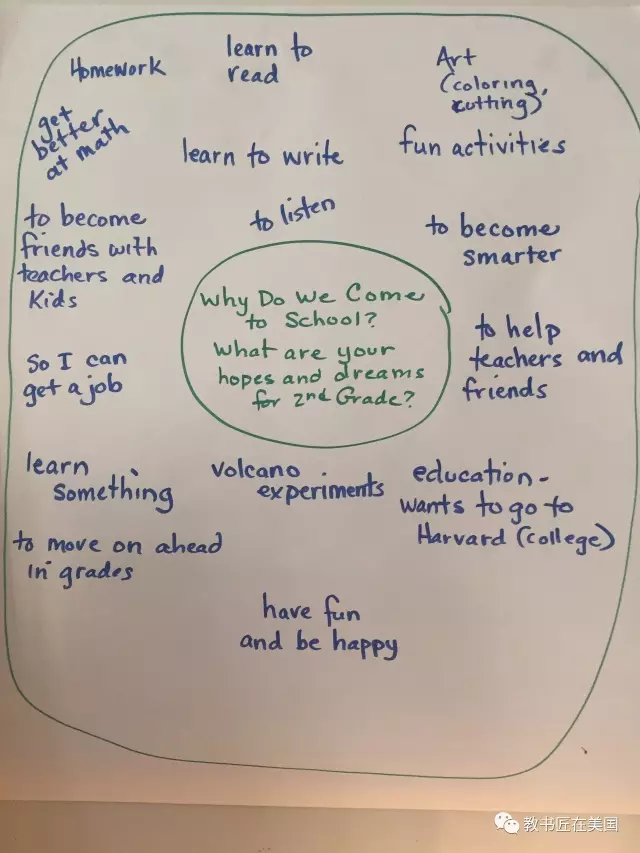 Homework
learn to
read
Art
(coloring,
cutting)
get
better
at math
learn to write
fun activities
to become
friends with
teachers and
Kids
to listen
to become
smarter
Why Do We Come
to School?
What are your
hopes and dreams
for 2nd Grade?
So I can
get a job
to help
teachers and
friends
learn
something
volcano
experiments
education-
wants to go to
Harvard (college)
to move on ahead
in grades
have fun
and be happy
教书匠在美国